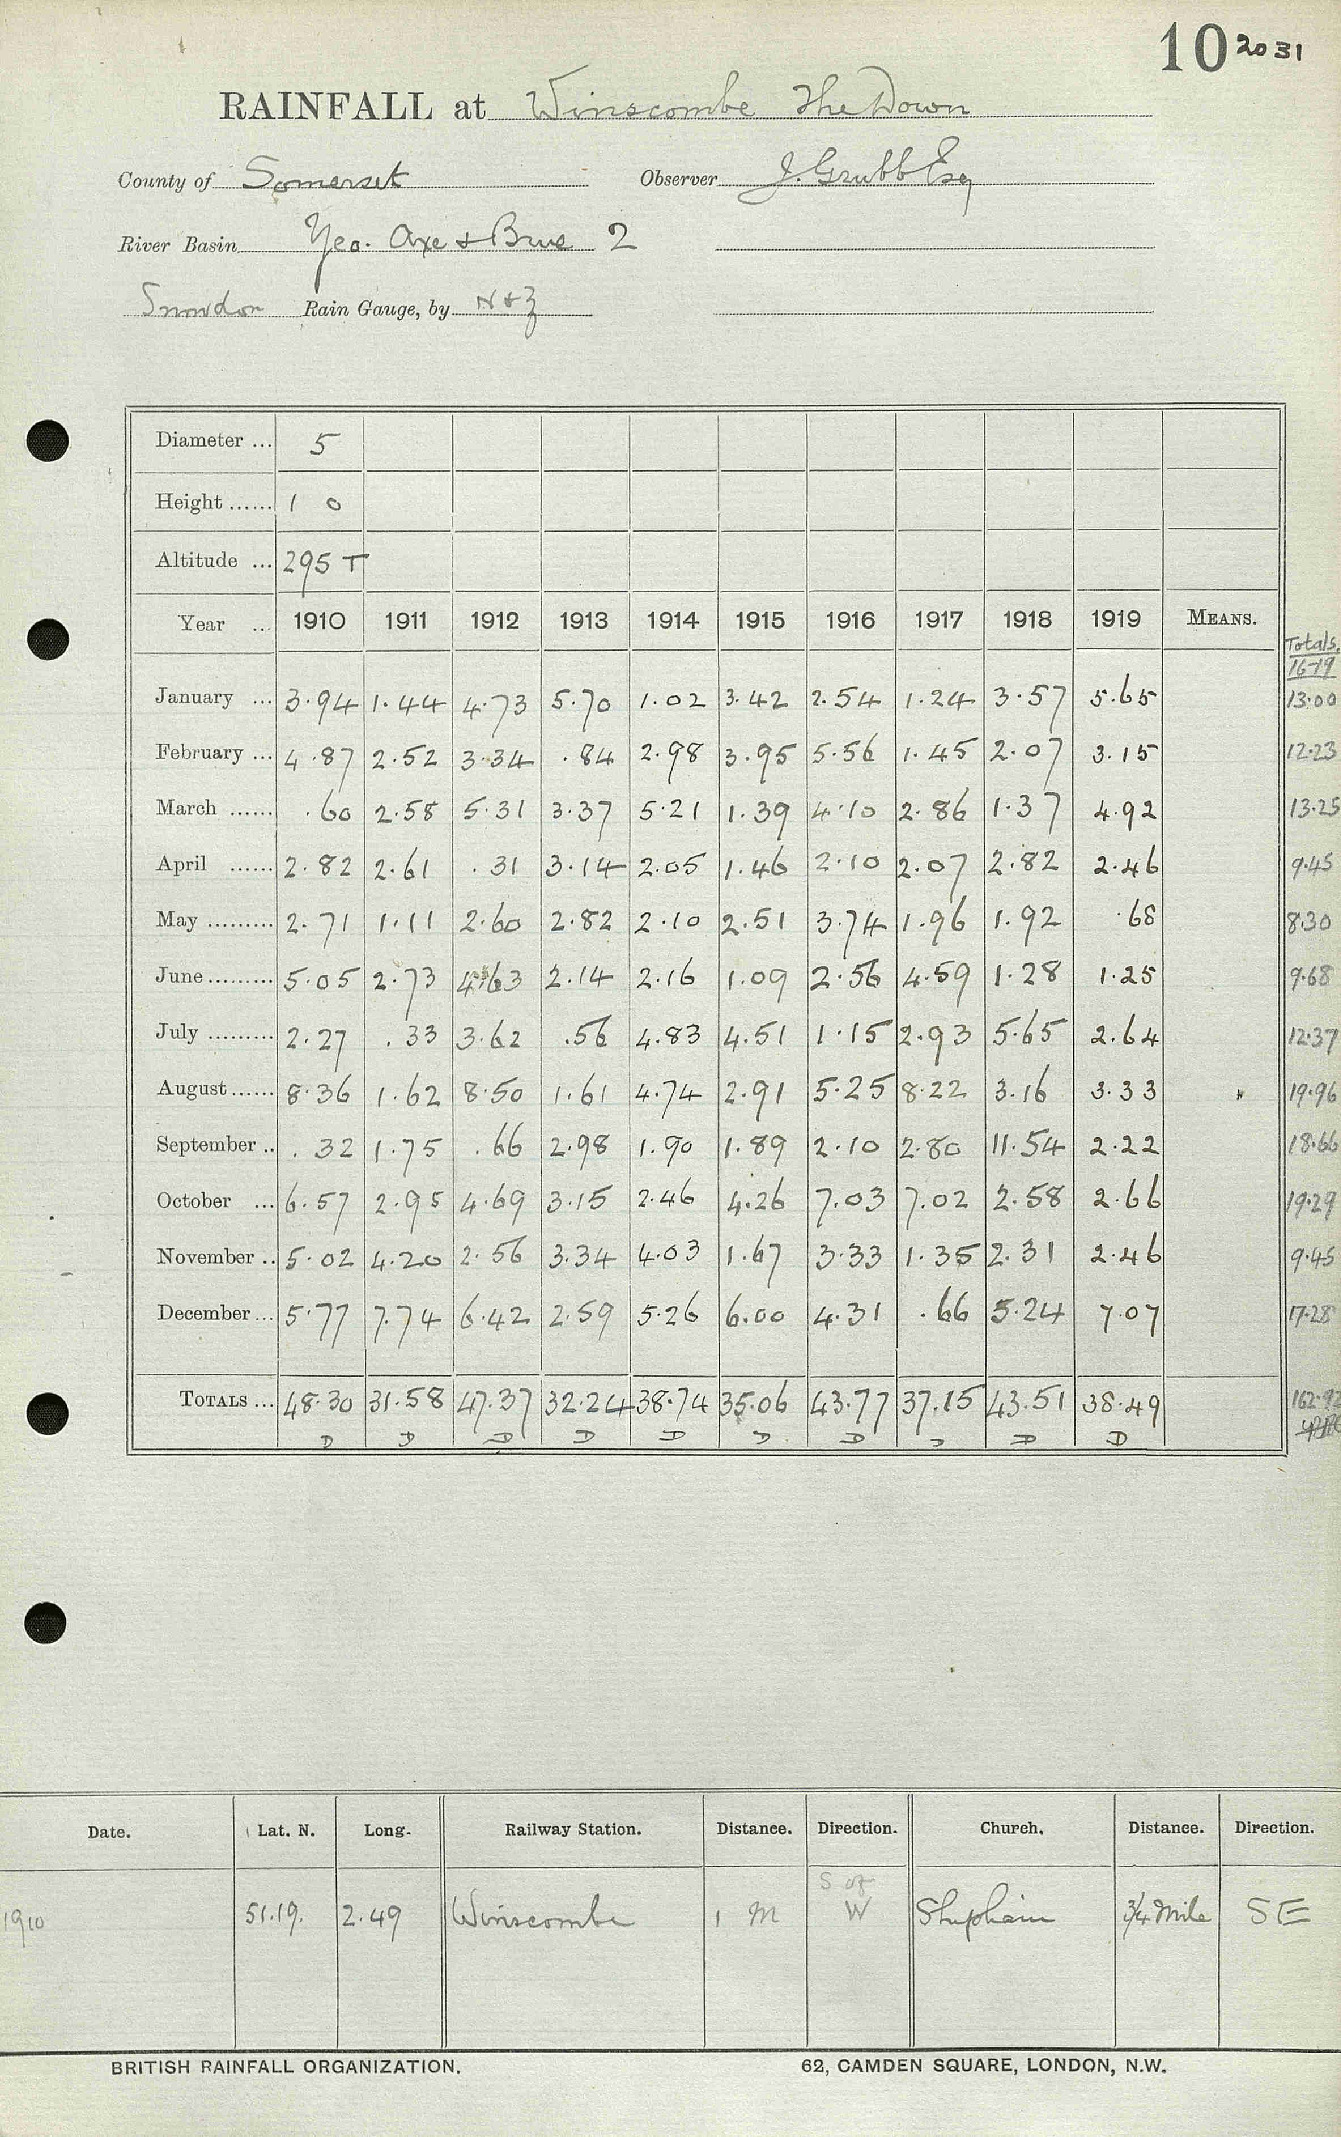 10 2031
RAINFALL at Winscombe The Down
County of Somerset Observer J. Grubb Esq
River Basin Yeo. Axe & Brue 2
Snowdon Rain Gauge, by N & Z
Diameter ... 5
Height ...... 1 0
Altitude ... 295 T
Year ... 1910 1911 1912 1913 1914 1915 1916 1917 1918 1919 MEANS. Totals. 16-19
January ... 3.94 1.44 4.73 5.70 1.02 3.42 2.54 1.24 3.57 5.65 13.00
February ... 4.87 2.52 3.34 .84 2.98 3.95 5.56 1.45 2.07 3.15 12.23
March ...... .60 2.58 5.31 3.37 5.21 1.39 4.10 2.86 1.37 4.92 13.25
April ...... 2.82 2.61 .31 3.14 2.05 1.46 2.10 2.07 2.82 2.46 9.45
May ......... 2.71 1.11 2.60 2.82 2.10 2.51 3.74 1.96 1.92 .68 8.30
June ......... 5.05 2.73 4.63 2.14 2.16 1.09 2.56 4.59 1.28 1.25 9.68
July ......... 2.27 .33 3.62 .56 4.83 4.51 1.15 2.93 5.65 2.64 12.37
August ...... 8.36 1.62 8.50 1.61 4.74 2.91 5.25 8.22 3.16 3.33 19.96
September .. .32 1.75 .66 2.98 1.90 1.89 2.10 2.80 11.54 2.22 18.66
October ... 6.57 2.95 4.69 3.15 2.46 4.26 7.03 7.02 2.58 2.66 19.29
November .. 5.02 4.20 2.56 3.34 4.03 1.67 3.33 1.35 2.31 2.46 9.45
December ... 5.77 7.74 6.42 2.59 5.26 6.00 4.31 .66 5.24 7.07 17.28
TOTALS ... 48.30 31.58 47.37 32.24 38.74 35.06 43.77 37.15 43.51 38.49 162.92
D D D D D D D D D D
Date. Lat. N. Long. Railway Station. Distance. Direction. Church. Distance. Direction.
1910 51.19. 2.49 Winscombe 1 M S of W Shipham 3/4 Mile SE
BRITISH RAINFALL ORGANIZATION. 62, CAMDEN SQUARE, LONDON, N.W.